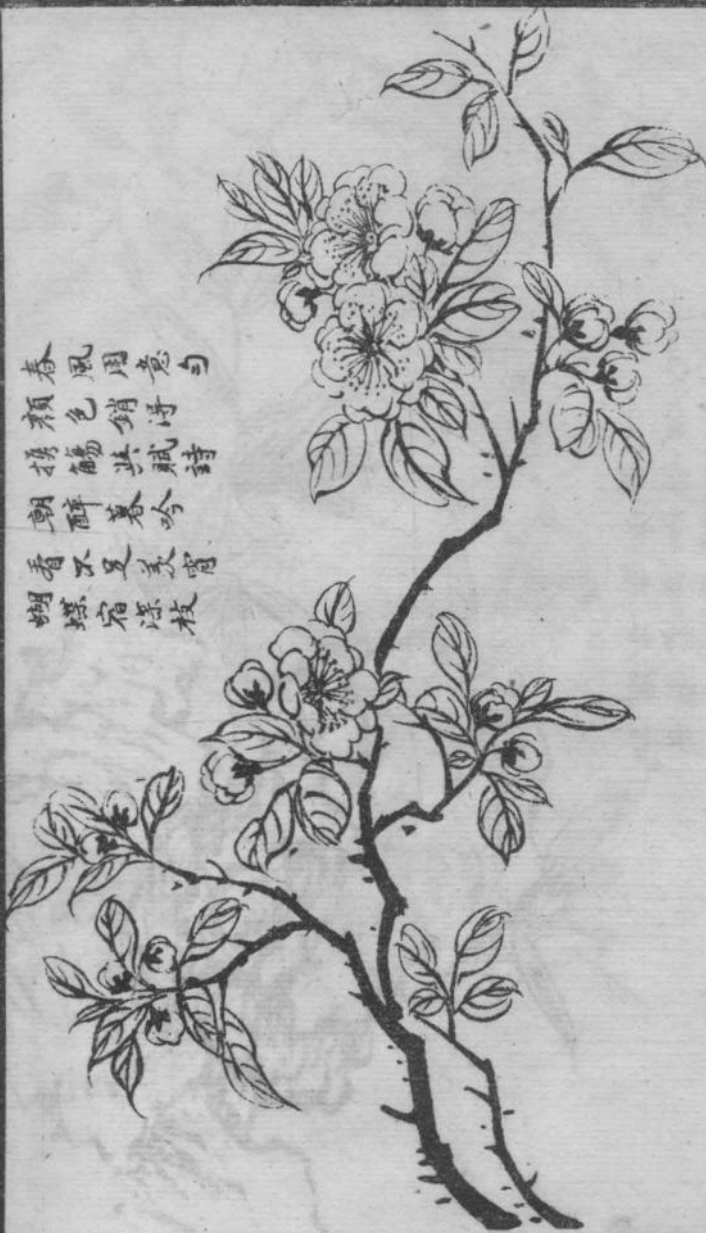 春風用意勻
顏色銷得
攜觴與賦詩
朝醉暮吟
看不足羨
蝴蝶宿深枝